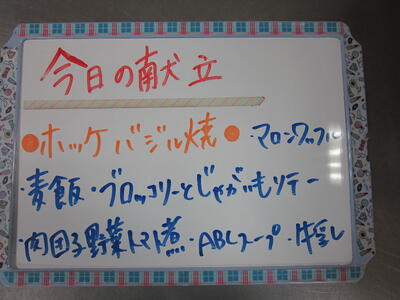 今日の献立
●ホッケバジル焼● ・マロンワッフル
・麦飯・ブロッコリーとじゃがいもソテー
・肉団子野菜トマト煮・ABCスープ・牛乳